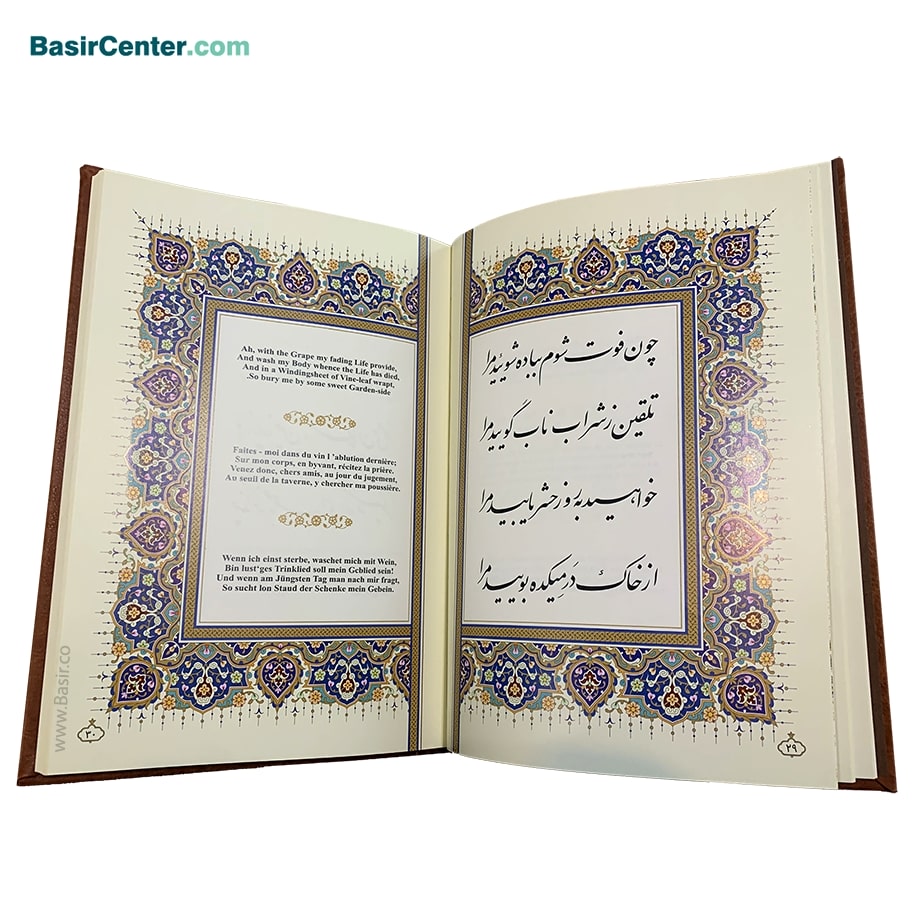 BasirCenter.com
چون فوت شوم بباده شوئید مرا
تلقین ز شراب ناب گویید مرا
خواهید به روز حشر یابید مرا
از خاک در میکده بویید مرا
۲۹
Ah, with the Grape my fading Life provide,
And wash my Body whence the Life has died,
And in a Windingsheet of Vine-leaf wrapt,
.So bury me by some sweet Garden-side
Faites - moi dans du vin l 'ablution dernière;
Sur mon corps, en byvant, récitez la prière.
Venez donc, chers amis, au jour du jugement,
Au seuil de la taverne, y chercher ma poussière.
Wenn ich einst sterbe, waschet mich mit Wein,
Bin lust*ges Trinklied soll mein Gcblied sein!
Und wenn am Jüngsten Tag man nach mir fragt,
So sucht lon Staud der Schenke mein Gebein.
۳۰
www.Basir.co